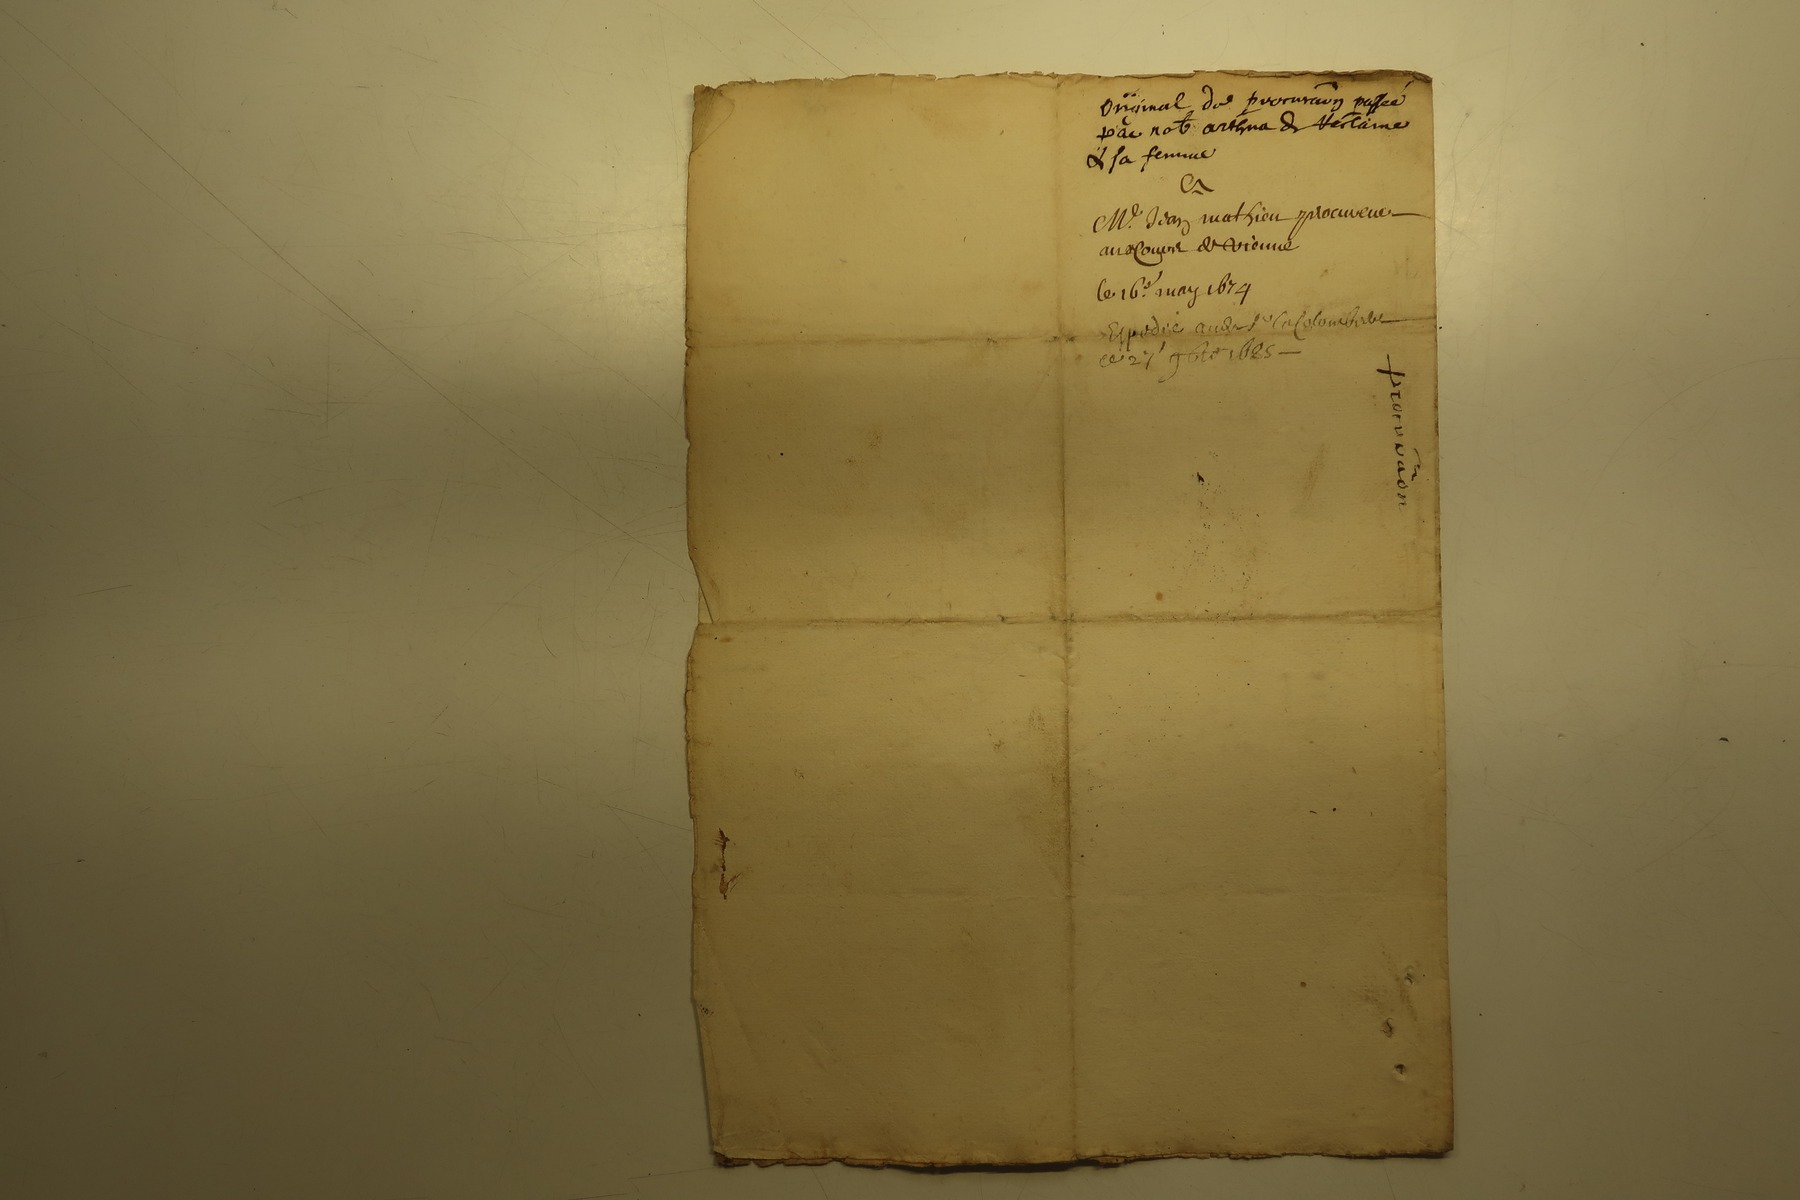 Original de procuraôn passée
par not arthua de Verlaine
& sa femme
A
Me. Jean mathieu procureur
aux Cours de Vienne
le 16e. may 1674
Expedié au Sr de la Colombiere
le 27e 9bre 1685
procurâôn